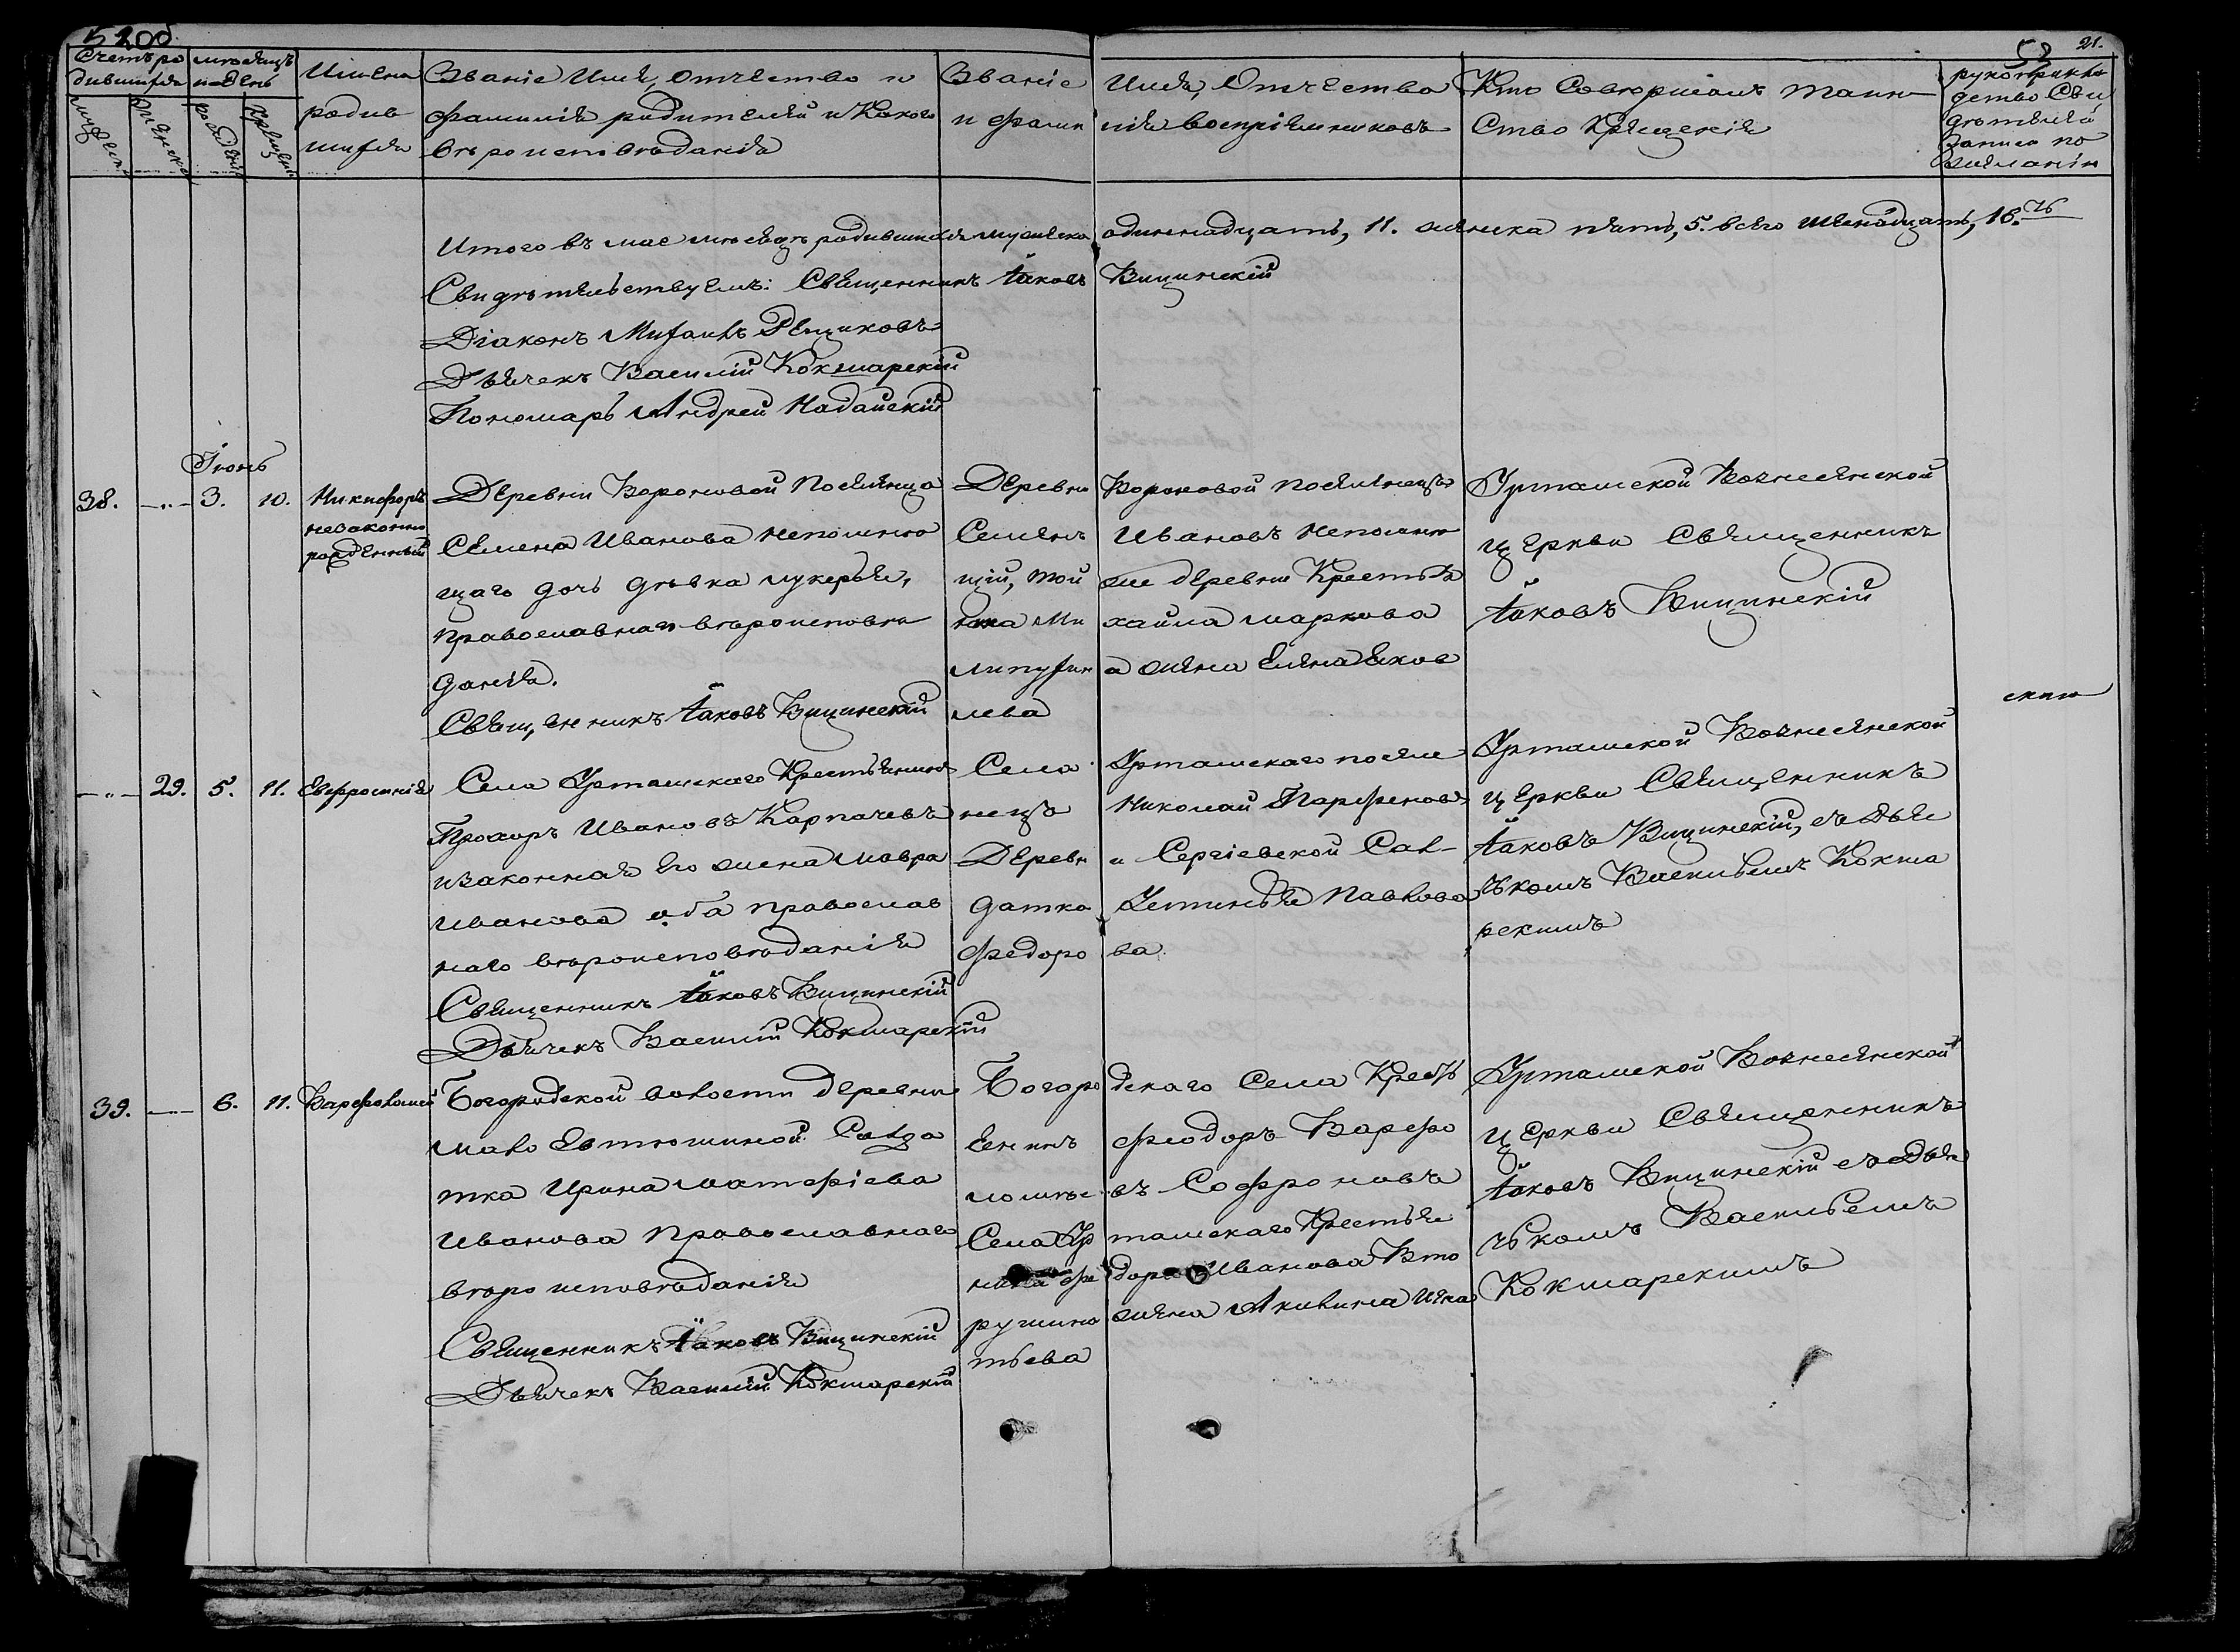 52 21.
Счетъ ро
дившихся
мѣсяцъ
и день
Имена
родив
шихся
Званіе Имя, Отчество и
фамилія родителей и Какого
вѣроисповѣданія
Званіе Имя, Отчество
и фамилія воспріемниковъ
Кто Совершалъ таин
ство крещенія
рукоприкла
дство Сви
дѣтелей
записи по
желанію
Итого въ мае мѣсяцѣ родившихся мужеска одиннадцать, 11. женска пять, 5. всего шестнадцать, 16.
Свидѣтельствуемъ: Священникъ Іаковъ Вицинскій
Діаконъ
Дьячекъ Василій Кокшарскій
Пономарь Андрей Надайскій
Іюнь
38. 3. 10. Никифоръ
незаконно
рожденный
Деревни Вороновой Поселенца
Семена Иванова Непомню
щаго дочь дѣвка лукерья,
православнаго вѣроисповѣ
данія.
Священникъ Іаковъ Вицинскій
Деревни Вороновой поселенецъ
Семенъ Ивановъ Непомню
щій, той же деревни Крестья
нина Михайла Маркова
жена Елена Яков
лева
Урташской Вознесенской
церкви Священникъ
Іаковъ Вицинскій
29. 5. 11. Евфросинія
Села Урташскаго Крестьянинъ
Прохоръ Ивановъ Карпачевъ
и законная Его жена Мавра
Иванова оба православ
наго вѣроисповѣданія
Священникъ Іаковъ Вицинскій
Дьячекъ Василій Кокшарскій
Села Урташскаго поселе
нецъ Николай Парфеновъ
Деревни Сергіевской Сол
датка Устинья Павлова
Федорова
Урташской Вознесенской
церкви Священникъ
Іаковъ Вицинскій, съ Дья
чкомъ Василіемъ Кокша
рскимъ
39. 6. 11. Варфоломей
Богородской волости деревни
мало Евтюшиной Солда
тка Ирина Матфіева
Иванова православнаго
вѣроисповѣданія
Священникъ Іаковъ Вицинскій
Дьячекъ Василій Кокшарскій
Богородскаго Села Кресть
янинъ Феодоръ Варфо
ломѣевъ Софроновъ
Села Урташскаго Крестья
нина Федора Иванова Вто
рушина жена Акилина Игна
тьева
Урташской Вознесенской
церкви Священникъ
Іаковъ Вицинскій съ Дья
чкомъ Василіемъ
Кокшарскимъ